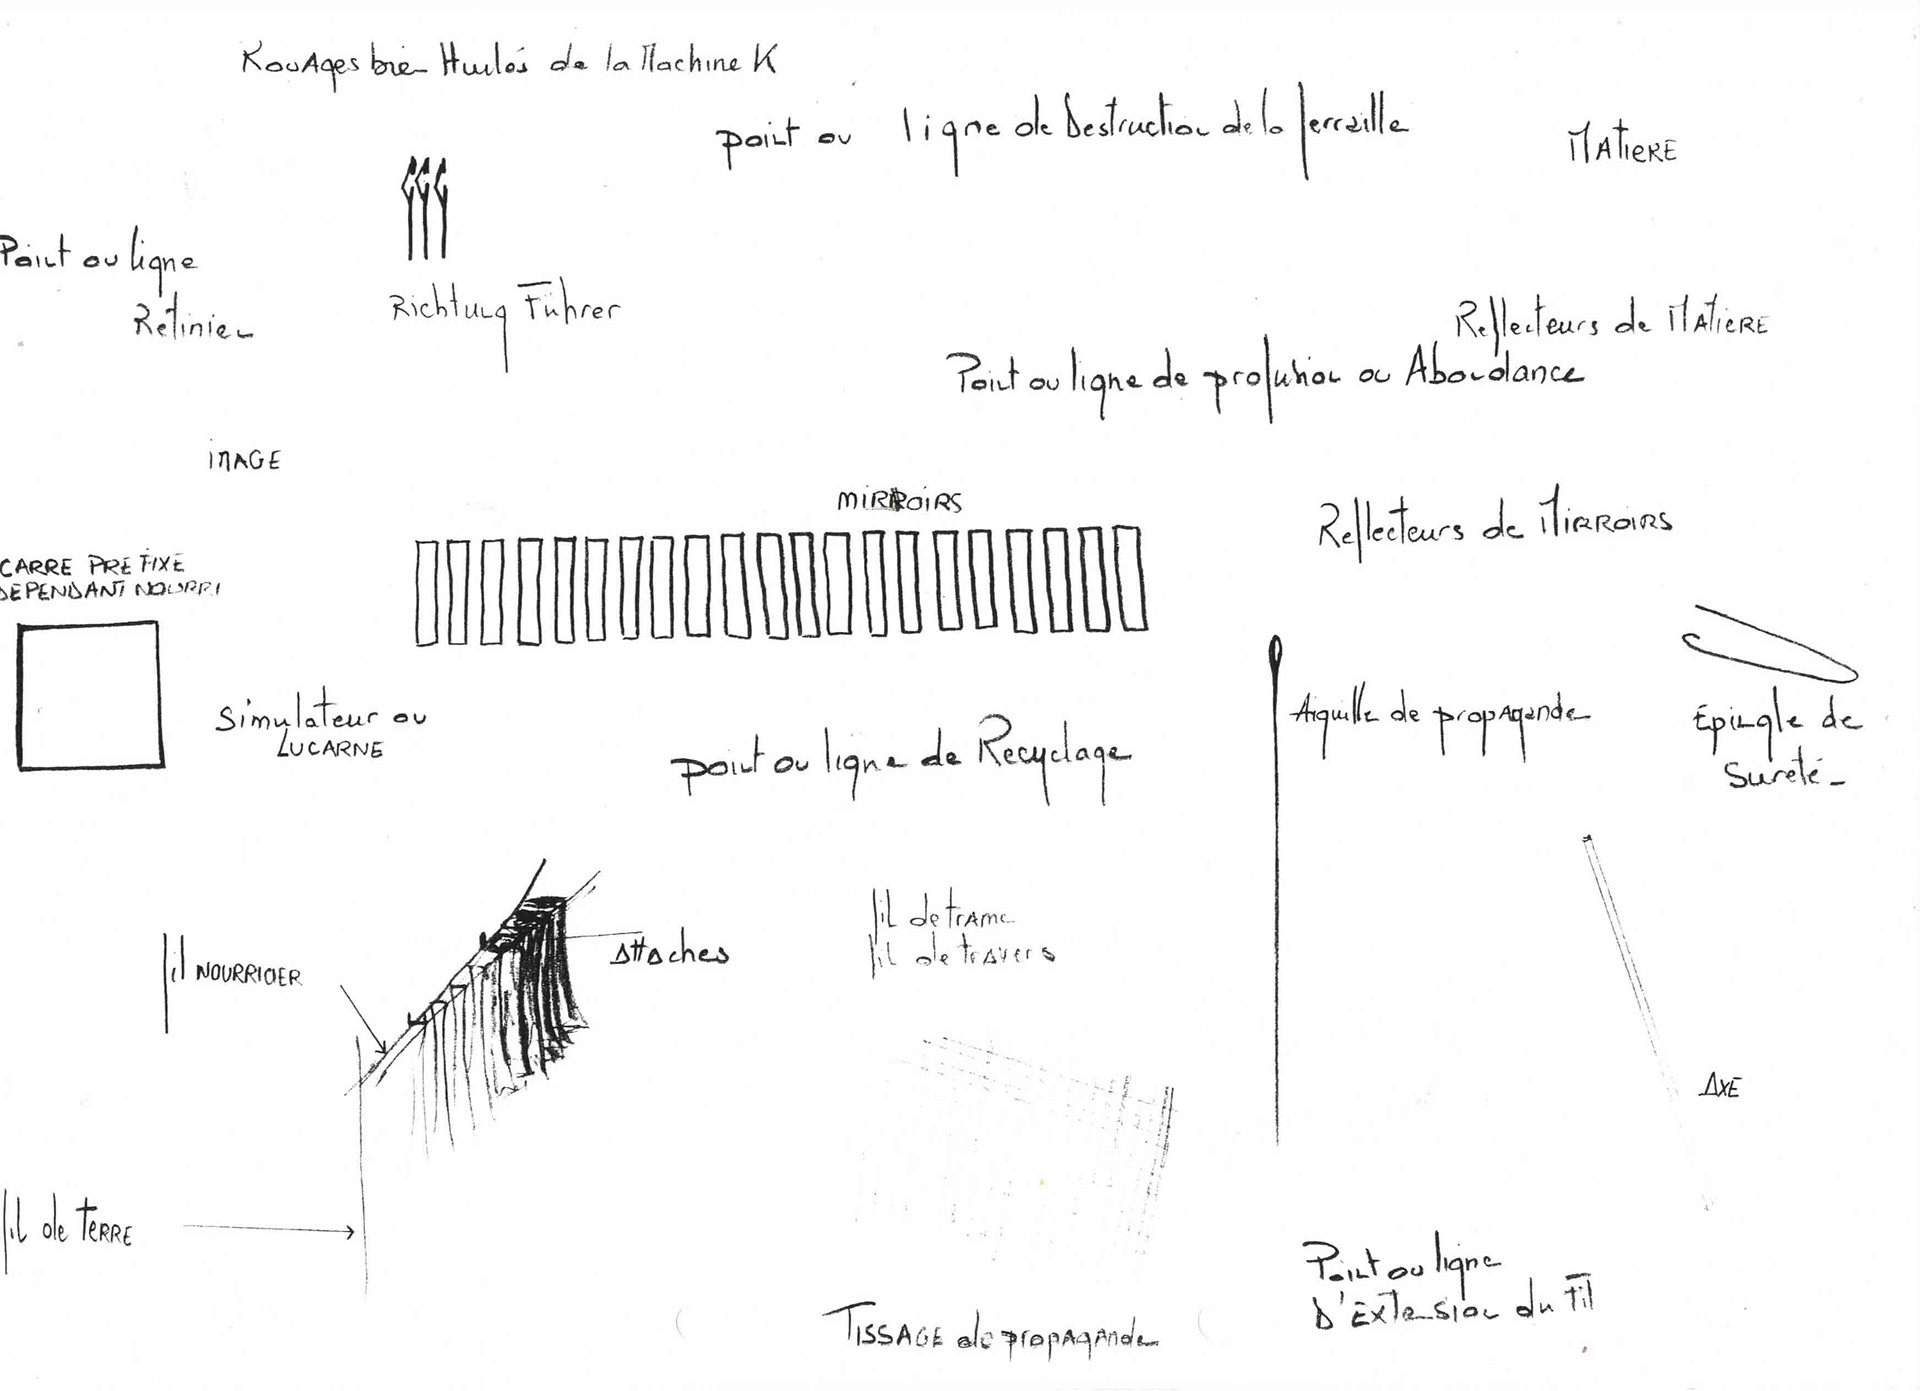 Rouages bien Huilés de la Machine K
point ou ligne de Destruction de la ferraille
MATIERE
Point ou ligne
Rétinien
Richtung Führer
Reflecteurs de MATIERE
Point ou ligne de profusion ou Abondance
iMAGE
MiRRoiRS
Reflecteurs de MiRRoiRS
CARRE PRE FIXE
DEPENDANT NOURRI
Simulateur ou
LUCARNE
point ou ligne de Recyclage
Aiguille de propagande
Epingle de
Sureté -
fil NOURRICIER
Attaches
fil de trame
fil de travers
AXE
fil de TERRE
Point ou ligne
D'Extension du Fil
TISSAGE de propagande